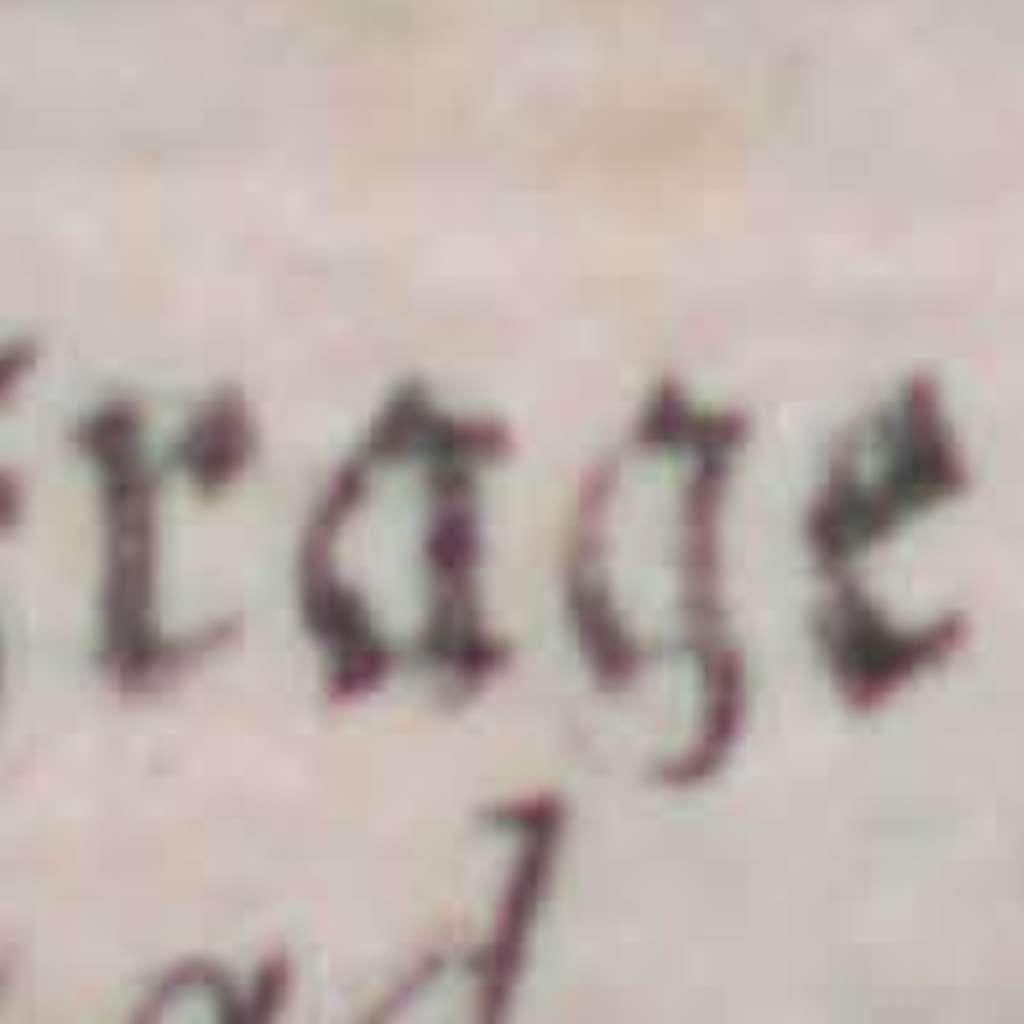 rage
ad